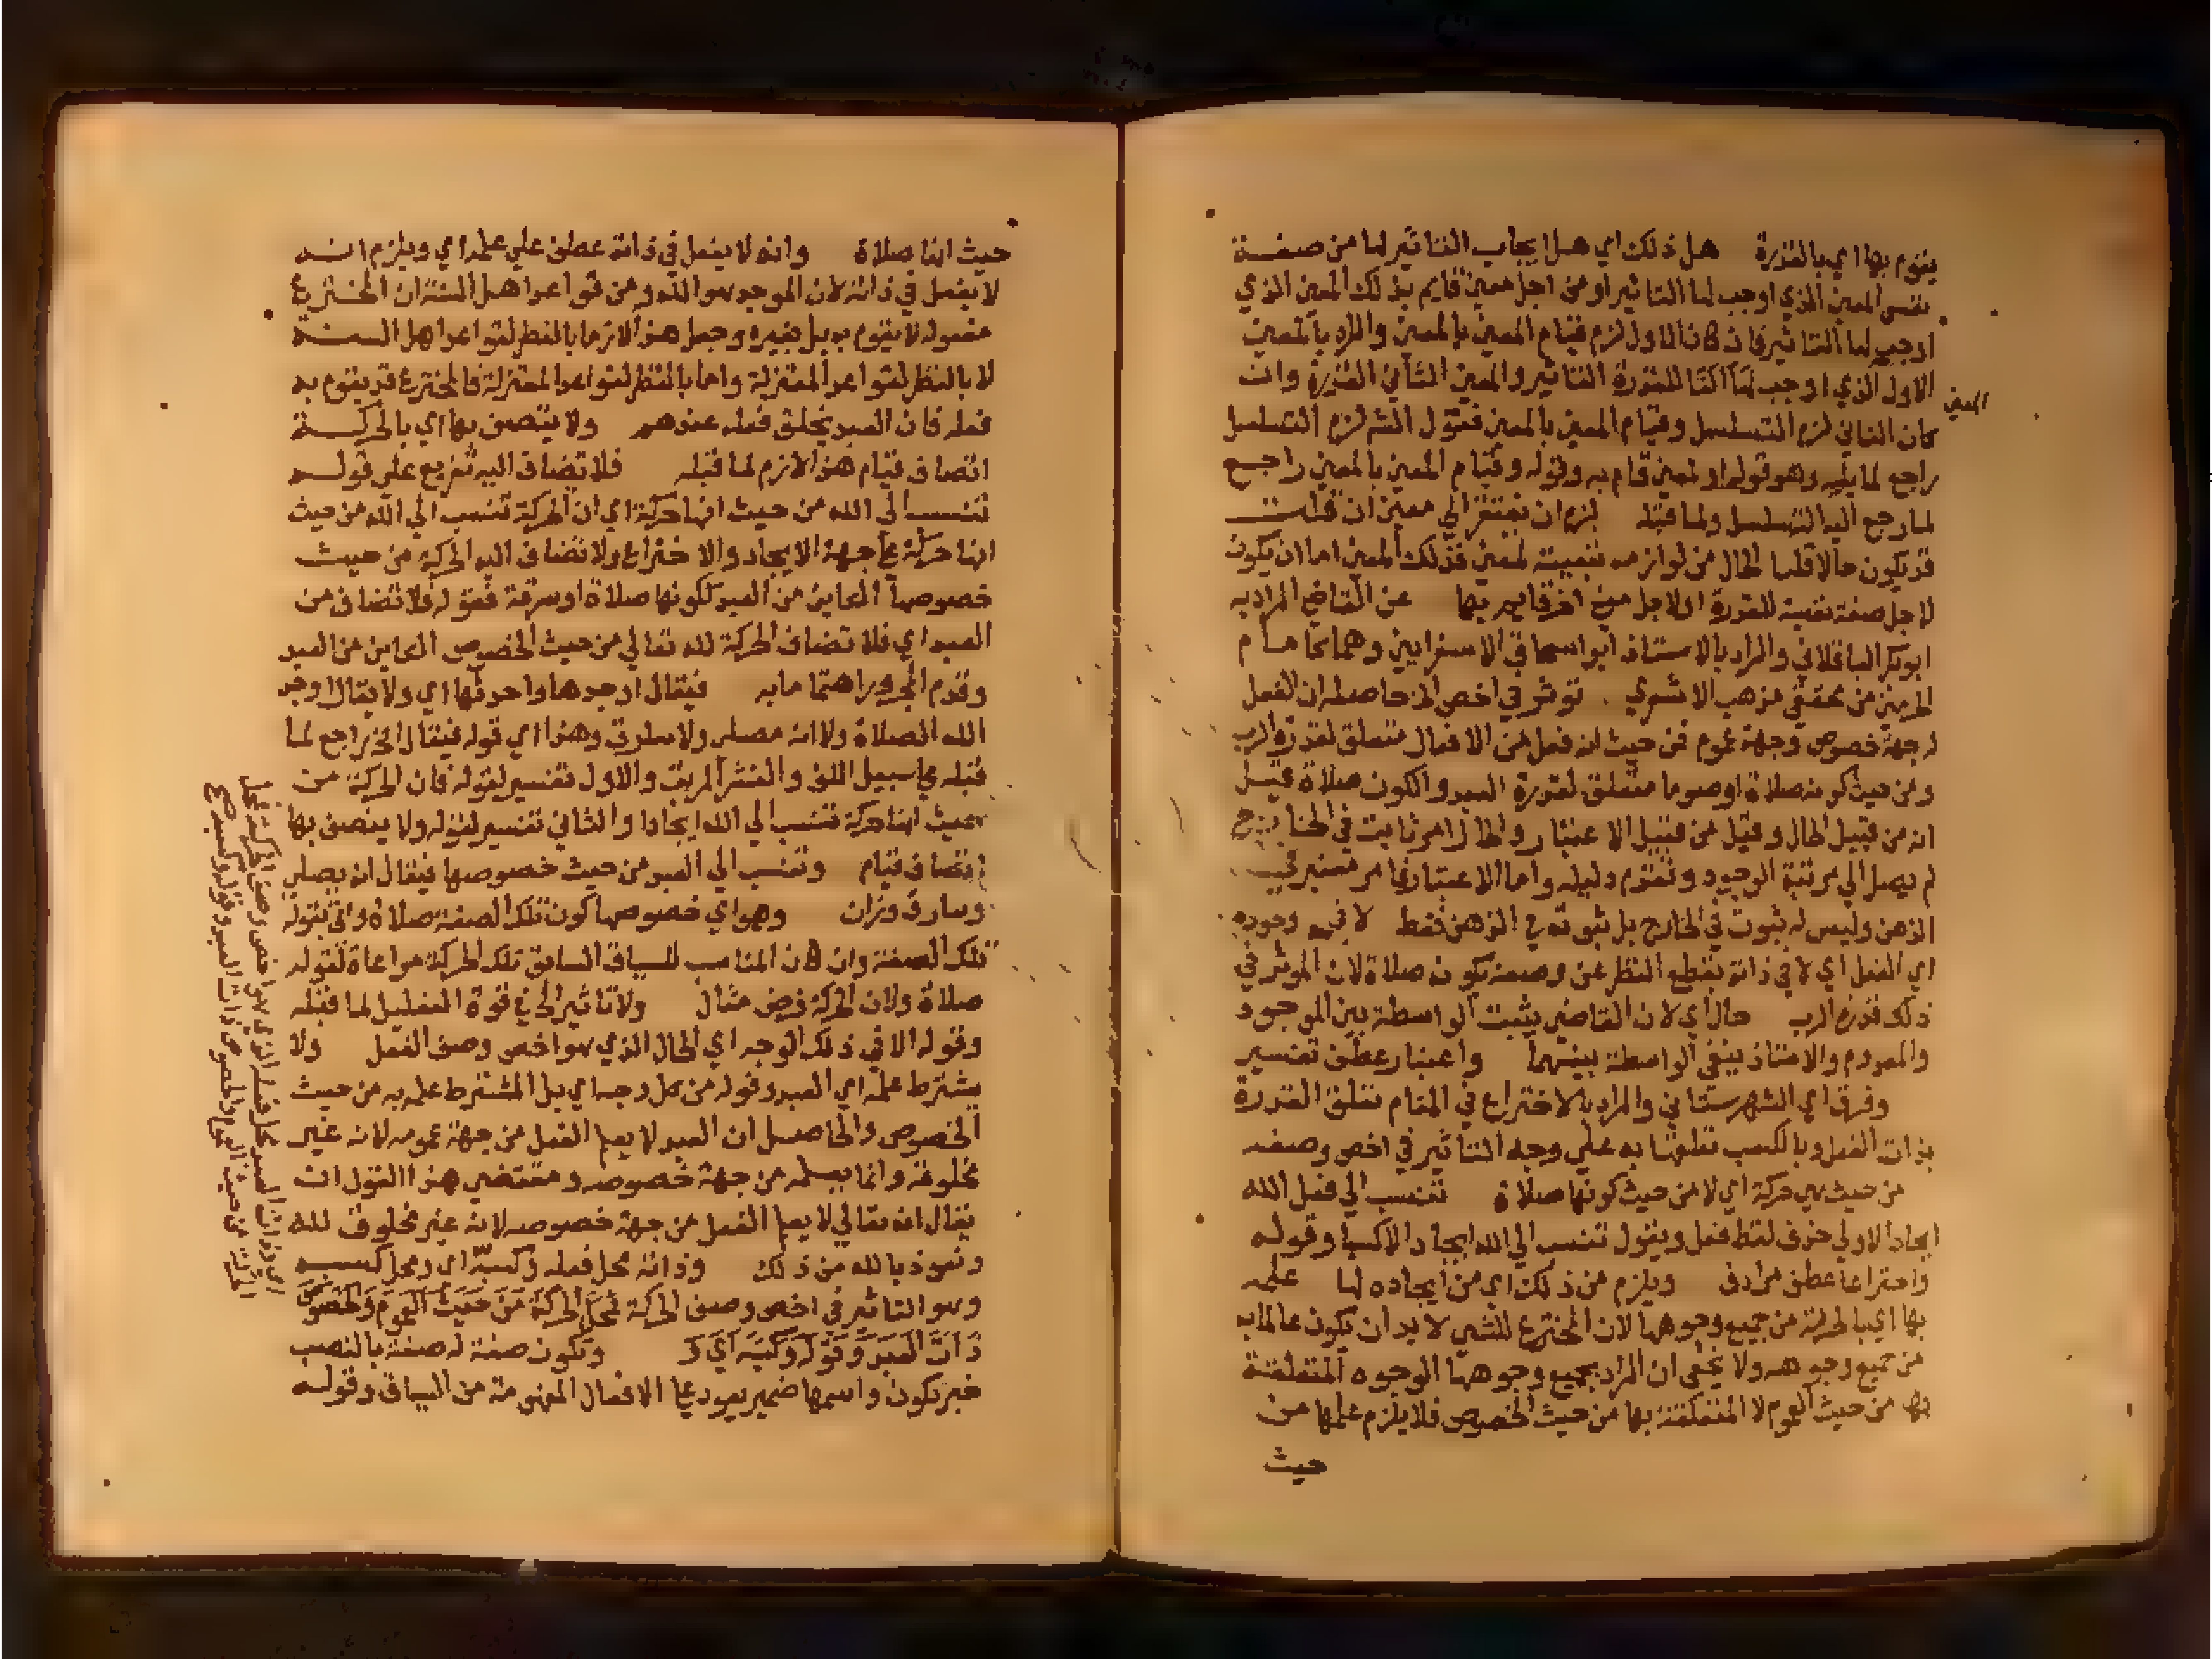 يقوم بها اي بالقدرة هل ذلك اي هل ايجاب التاثير لها من صفة
نفس المعين الذي اوجب لها التاثير او من اجل معين قايم بذلك المعين الذي
اوجب لها التاثير فان كان الاول لزم قيام المعين بالمعين والمراد بالمعين
الاول الذي اوجب للقدرة التاثير والمعين الثاني القدرة وان
المعين
كان الثاني لزم التسلسل وقيام المعين بالمعين فقول الش لزم التسلسل
راجع لما يليه وهو قوله او لمعين قام به وقوله وقيام المعين بالمعين راجع
لما رجع اليه التسلسل ولما قبله لزم ان يفتقر الي معين ان قلت
قد يكون حالا قلنا الحال من لوازمه تبعيته لمعين فذلك المعين اما ان يكون
لاجل صفة نفسية للقدرة او لاجل معين اخر قايم بها عن القاضي المراد به
ابو بكر الباقلاني والمراد بالاستاذ ابو اسحاق الاسفرايين وهما كامام
الحرمين من محققي مذهب الاشعري تؤثر في اخص الخ حاصله ان الفعل
له جهة خصوص وجهة عموم فمن حيث انه فعل من الافعال متعلق لقدرة الرب
ومن حيث كونه صلاة او صوما متعلق لقدرة العبد والكون صلاة قيل
انه من قبيل الحال وقيل من قبيل الاعتبار والحال امر ثابت في الخارج
لم يصل الي مرتبة الوجود وتقوم دليله واما الاعتبار فامر معتبر في
الذهن وليس له ثبوت في الخارج بل ثبوته في الذهن فقط لا في وجوده
اي الفعل اي لا في ذاته بقطع النظر عن وصفه بكونه صلاة لان الموثر في
ذلك قدرة الرب حال اي لان القاضي يثبت الواسطة بين الموجود
والمعدوم والاستاذ ينفي الواسطة بينهما واعتبار عطف تفسير
وفرق اي الشهرستاني والمراد بالاختراع في المقام تعلق القدرة
بذات الفعل وبالكسب تعلقها به علي وجه التاثير في اخص وصفه
من حيث هي حركة اي لا من حيث كونها صلاة تنسب الي فعل الله
ايجادا الاولي حذف لفظ فعل ويقول تنسب الي الله ايجادا لا كسبا وقوله
واختراعا عطف مرادف ويلزم من ذلك اي من ايجاده لها علمه
بها اي بالحركة من جميع وجوهها لان المخترع للشي لا بد ان يكون عالما به
من جميع وجوهه ولا يخفي ان المراد بجميع وجوهها الوجوه المتعلقة
بها من حيث العموم لا المتعلقة بها من حيث الخصوص فلا يلزم علمها من
حيث
حيث انها صلاة وانه لا يفعل في ذاته عطف علي علمه اي ويلزم انه
لا يفعل في ذاته لان الموجد هو الله ومن قواعد اهل السنة ان المخترع
مفعوله لا يقوم به بل بغيره وجعل هذا لازما بالنظر لقواعد اهل السنة
لا بالنظر لقواعد المعتزلة واما بالنظر لقواعد المعتزلة فالمخترع قد يقوم به
فعله فان العبد يخلق فعله عندهم ولا يتصف بها اي بالحركة
اتصاف قيام هذا لازم لما قبله فلا تضاف اليه تفريع علي قوله
تنسب الي الله من حيث انها حركة اي ان الحركة تنسب الي الله من حيث
انها حركة علي جهة الايجاد والاختراع ولا تضاف اليه الحركة من حيث
خصوصها العاين من العبد ككونها صلاة او سرقة فقوله فلا تضاف من
العبد اي فلا تضاف الحركة لله تعالي من حيث الخصوص العاين من العبد
وقدم المجرور اهتماما به فيقال اوجدها واحدثها اي ولا يقال اوجد
الله الصلاة ولا انه مصلي ولا سارق وهذا اي قوله فيقال الخ راجع لما
قبله علي سبيل اللف والنشر المرتب والاول تفسير لقوله فان الحركة من
حيث انها حركة تنسب الي الله ايجادا والثاني تفسير لقوله ولا يتصف بها
اتصاف قيام وتنسب الي العبد من حيث خصوصها فيقال انه يصلي
وسارق وزان وهو اي خصوصها كون تلك الصفة صلاة واتي بقوله
تلك الصفة وان كان المناسب للسياق السابق تلك الحركة مراعاة لقوله
صلاة ولان الحركة فرض مثال ولا تاثير الخ في قوة التعليل لما قبله
وقوله الا في ذلك الوجه اي الحال الذي هو اخص وصف الفعل ولا
يشترط علمه اي العبد وقوله من كل وجه اي بل المشترط علمه به من حيث
الخصوص والحاصل ان العبد لا يعلم الفعل من جهة عمومه لانه غير
مخلوقه وانما يعلمه من جهة خصوصه ومقتضي هذا القول ان
يقال انه تعالي لا يعلم الفعل من جهة خصوصه لانه غير مخلوق لله
ونعوذ بالله من ذلك وذاته محل فعله وكسبه اي ومحل كسبه
وهو التاثير في اخص وصف الحركة فمحل الحركة من حيث العموم والخصوص
ذات العبد وقوله وكسبه اي و وتكون صفة له صفة بالنصب
خبر تكون واسمها ضمير يعود علي الافعال المفهومة من السياق وقوله